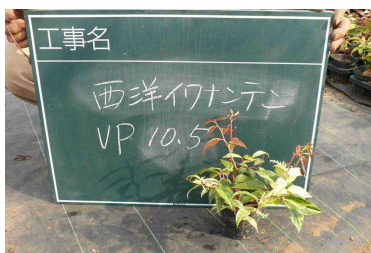 工事名
西洋イワナンテン
VP 10.5